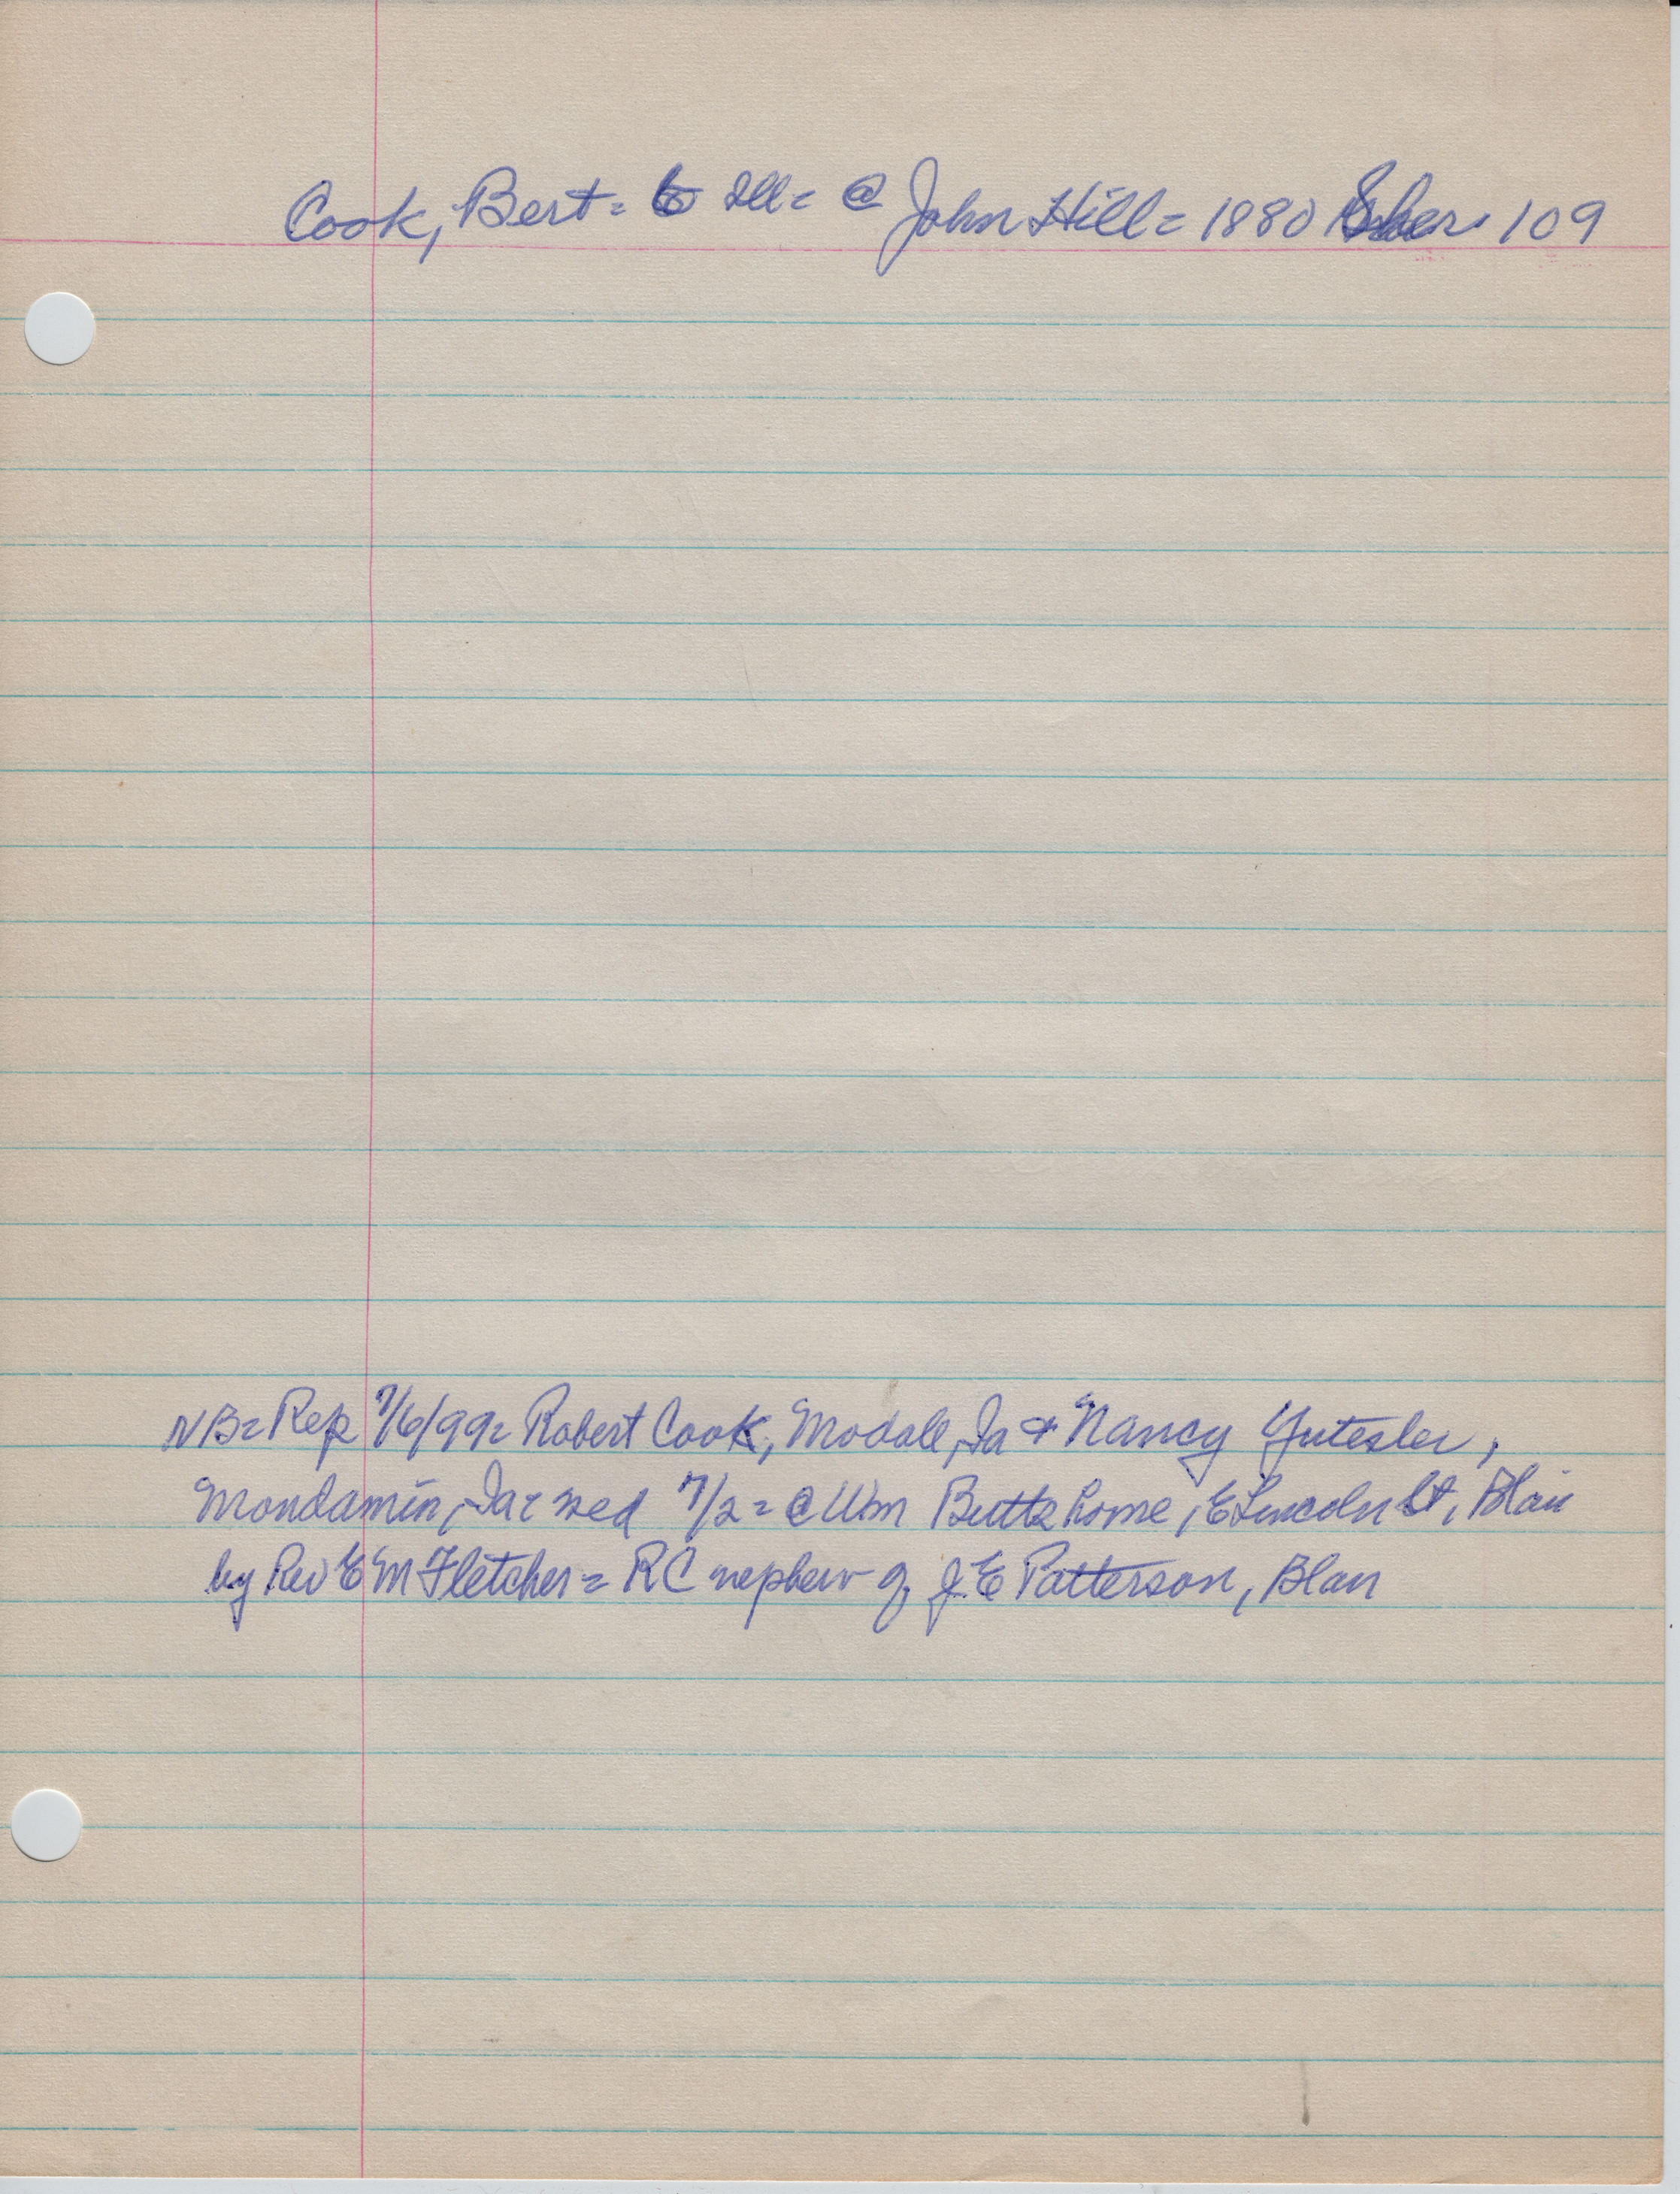 Cook, Bert = 6 Ill = @ John Hill = 1880 Sher 109
NB = Rep 7/6/99 = Robert Cook, Modale, Ia + Nancy Yutesler,
Mondamin, Ia = wed 7/2 = @ Wm Butts home, E Lincoln St, Blair
by Rev E M Fletcher = RC nephew of J.E Patterson, Blair